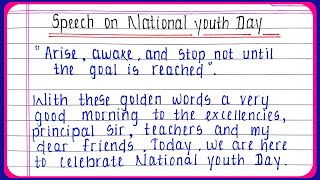 Speech on National youth Day
"Arise, awake, and stop not until
the goal is reached".
With these golden words a very
good morning to the excellencies,
principal sir, teachers and my
dear friends. Today, we are here
to celebrate National youth Day.